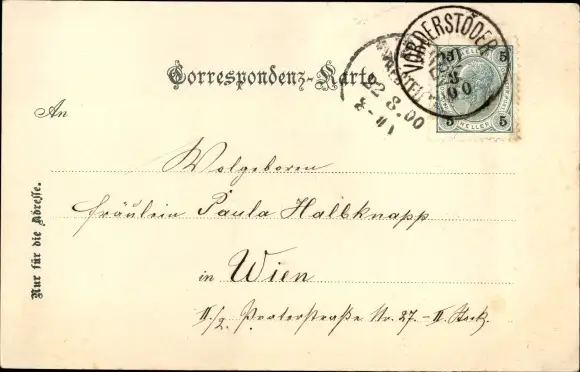 Correspondenz-Karte.
VORDERSTODER
00
22 8.00
8-11
5 5
HELLER
5 5
An
Wolgeboren
Fräulein Paula Halbknapp
in Wien
II./2. Praterstraße Nr. 27. - II. Stock.
Nur für die Adresse.